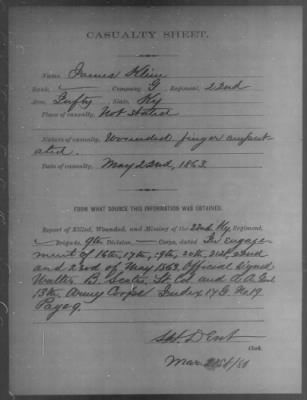 CASUALTY SHEET.
Name, James Klein
Rank, Company G Regiment, 22nd
Arm, Infty State, Ky
Place of casualty, Not Stated
Nature of casualty, Wounded finger amput-
ated.
Date of casualty, May 22nd, 1863.
FROM WHAT SOURCE THIS INFORMATION WAS OBTAINED.
Report of Killed, Wounded, and Missing of the 22nd Ky Regiment,
Brigade, 9th Division, Corps, dated In engage-
ment of 16th, 17th, 19th, 20th, 21st, 22nd
and 23rd of May 1863. Official Signed
Walter B. Scates, Lt Col and A.A.Genl
13th Army Corps Index 17 G. No 19
Page 9.
Dent
Clerk.
Mar